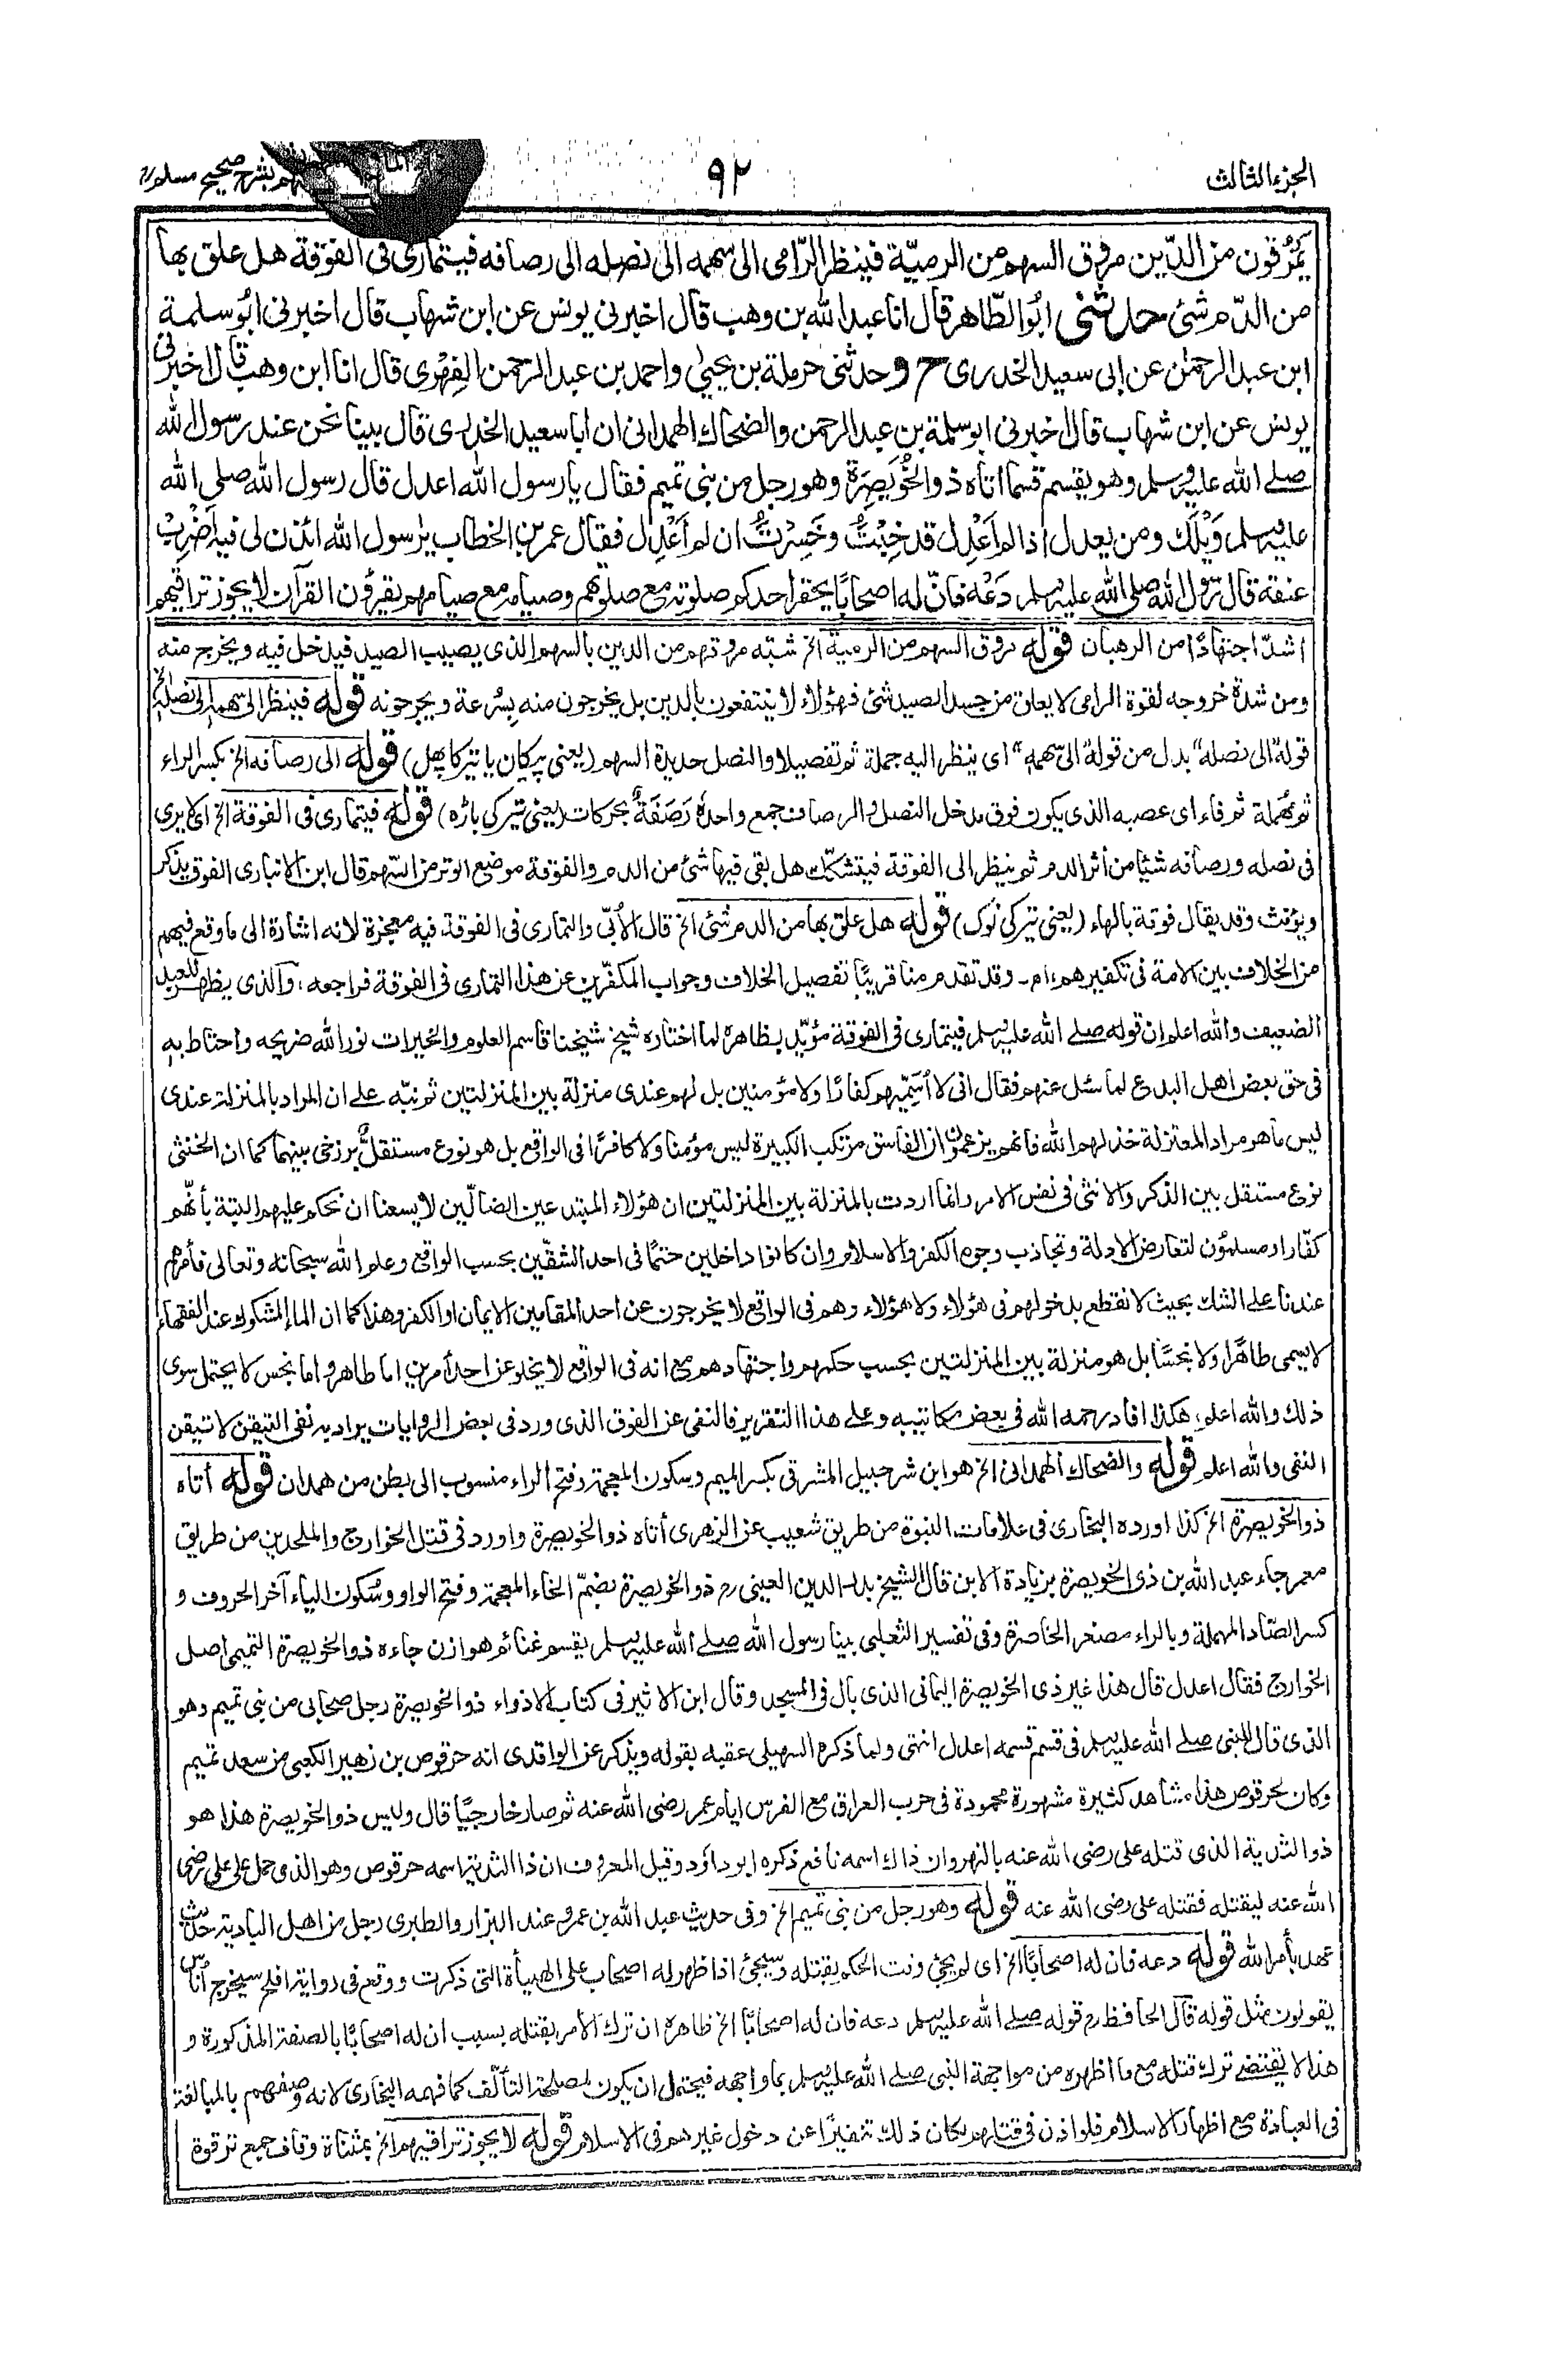 الجزء الثالث
٩٢
بشرح صحيح مسلم
يَمْرُقون من الدّين مروق السهم من الرميّة فينظر الرّامى الى سهمه الى نصله الى رصافه فيتمارى فى الفوقة هل علق بها
من الدّم شئ حدثنى ابُو الطّاهر قال انا عبد الله بن وهب قال اخبرنى يونس عن ابن شهاب قال اخبرنى ابُو سلمة
ابن عبد الرحمٰن عن ابى سعيد الخدرى ح وحدثنى حرملة بن يحيىٰ واحمد بن عبد الرحمن الفِهْرى قال انا ابن وهب قال اخبرنى
يونس عن ابن شهاب قال اخبرنى ابو سلمة بن عبد الرحمن والضحاك الهمدانى ان ابا سعيد الخدرى قال بينا نحن عند رسول الله
صلے الله عليه وسلم وهو يقسم قسما اتاه ذو الخُوَيصِرَة وهو رجل من بنى تميم فقال يا رسول الله اعدل قال رسول الله صلى الله
عليه وسلم وَيْلَك ومن يعدل اذا لم اَعْدِل قد خِبْتُ وخَسِرْتُ ان لم اَعْدِل فقال عمر بن الخطاب يٰرسول الله ائذن لى فيه اَضْرِبْ
عنقه قال رسول الله صلى الله عليه وسلم دَعْه فانّ له اصحابًا يحقر احدكم صلوته مع صلوتهم وصيامه مع صيامهم يقرؤن القرآن لا يجوز تراقيهم
اشدّ اجتهادًا من الرهبان قوله مروق السهم من الرمية الخ شبّه مروقهم من الدين بالسهم الذى يصيب الصيد فيدخل فيه ويخرج منه
ومن شدة خروجه لقوة الرامى لا يعلق من جسد الصيد شئ فهؤلاء لا ينتفعون بالدين بل يخرجون منه بسُرعة ويجرحونه قوله فينظر الى سهمه الى نصله الخ
قوله "الى نصله" بدل من قوله "الى سهمه" اى ينظر اليه جملة ثم تفصيلا والنصل حديدة السهم (يعنى پيكان يا تير كا پهل) قوله الى رصافه الخ بكسر الراء
ثم مهملة ثم فاء اى عصبه الذى يكون فوق مدخل النصل والرصاف جمع واحدة رَصَفَةٌ بحركات (يعنى تير كى باڑه) قوله فيتمارى فى الفوقة الخ اى لا يرى
فى نصله ورصافه شيئا من أثر الدم ثم ينظر الى الفوقة فيتشكك هل بقى فيها شئ من الدم والفوقة موضع الوتر من السّهم قال ابن الانبارى الفوق يذكر
ويؤنث وقد يقال فوقة بالهاء (يعنى تير كى نوك) قوله هل علق بها من الدم شئ الخ قال الأُبّى والتمارى فى الفوقة، فيه معجزة لانه اشارة الى ما وقع فيهم
من الخلاف بين الامة فى تكفيرهم، اهـ. وقد تقدم منا قريبًا تفصيل الخلاف وجواب المكفّرين عن هذا التمارى فى الفوقة فراجعه، والذى يظهر للعبد
الضعيف والله اعلم ان قوله صلے الله عليه وسلم فيتمارى فى الفوقة مؤيّد بظاهره لما اختاره شيخ شيخنا قاسم العلوم والخيرات نور الله ضريحه واحتاط به
فى حق بعض اهل البدع لما سئل عنهم فقال انى لا أسَمِّيهم كفارًا ولا مؤمنين بل لهم عندى منزلة بين المنزلتين ثم نبّه على ان المراد بالمنزلة عندى
ليس ما هو مراد المعتزلة خذلهم الله فانهم يزعمون ان الفاسق مرتكب الكبيرة ليس مؤمنا ولا كافرًا فى الواقع بل هو نوع مستقل برزخى بينهما كما ان الخنثى
نوع مستقل بين الذكر والانثى فى نفس الامر وانما اردت بالمنزلة بين المنزلتين ان هؤلاء المبتدعين الضالّين لا يسعنا ان نحكم عليهم البتة بأنّهم
كفّار او مسلمؤن لتعارض الادلة وتجاذب وجوه الكفر والاسلام وان كانوا داخلين حتمًا فى احد الشقّين بحسب الواقع وعلم الله سبحانه وتعالى فأمرهم
عندنا على الشك بحيث لا نقطع بدخولهم فى هؤلاء ولا هؤلاء وهم فى الواقع لا يخرجون عن احد المقامين الايمان او الكفر وهذا كما ان الماء المشكوك عند الفقهاء
لا يسمى طاهرًا ولا نجسًا بل هو منزلة بين المنزلتين بحسب حكمهم واجتهادهم مع انه فى الواقع لا يخلو عن احد أمرين اما طاهر واما نجس لا يحتمل سوى
ذلك والله اعلم، هكذا افاد رحمه الله فى بعض مكاتيبه وعلى هذا التقرير فالنفى عن الفوق الذى ورد فى بعض الروايات يراد به نفى التيقن لا تيقن
النفى والله اعلم قوله والضحاك الهمدانى الخ هو ابن شرحبيل المشرقى بكسر الميم وسكون المعجمة وفتح الراء منسوب الى بطن من همدان قوله أتاه
ذو الخويصرة الخ كذا اورده البخارى فى علامات النبوة من طريق شعيب عن الزهرى أتاه ذو الخويصرة واورد فى قتل الخوارج والملحدين من طريق
معمر جاء عبد الله بن ذى الخويصرة بزيادة الابن قال الشيخ بدر الدين العينى رح ذو الخويصرة بضمّ الخاء المعجمة وفتح الواو وسُكون الياء آخر الحروف و
كسر الصّاد المهملة وبالراء مصغر الخاصرة وفى تفسير الثعلبى بينا رسول الله صلے الله عليه وسلم يقسم غنائم هوازن جاءه ذو الخويصرة التميمى اصل
الخوارج فقال اعدل قال هذا غير ذى الخويصرة اليمانى الذى بال فى المسجد وقال ابن الاثير فى كتاب الاذواء ذو الخويصرة رجل صحابى من بنى تميم وهو
الذى قال للنبى صلے الله عليه وسلم فى قسم قسمه اعدل انتهى ولما ذكره السهيلى عقبه بقوله ويذكر عن الواقدى انه حرقوص بن زهير الكعبى من سعد تميم
وكان لحرقوص هذا مشاهد كثيرة مشهورة محمودة فى حرب العراق مع الفرس ايام عمر رضى الله عنه ثم صار خارجيًا قال وليس ذو الخويصرة هذا هو
ذو الثدية الذى قتله على رضى الله عنه بالنهروان ذاك اسمه نافع ذكره ابو داؤد وقيل المعروف ان ذا الثدية اسمه حرقوص وهو الذى حمل على على رضى
الله عنه ليقتله فقتله على رضى الله عنه قوله وهو رجل من بنى تميم الخ وفى حديث عبد الله بن عمرو عند البزار والطبرى رجل من اهل البادية حديث
عهد بأمر الله قوله دعه فان له اصحابًا الخ اى لم يجئ وقت الحكم بقتله وسيجئ اذا ظهر له اصحاب على الهيأة التى ذكرت ووقع فى رواية افلح سيخرج أناس
يقولون مثل قوله قال الحافظ رح قوله صلے الله عليه وسلم دعه فان له اصحابًا الخ ظاهره ان ترك الأمر بقتله بسبب ان له اصحابًا بالصفة المذكورة و
هذا لا يقتضے ترك قتله مع ما اظهره من مواجهة النبى صلے الله عليه وسلم بما واجهه فيحتمل ان يكون لمصلحة التألّف كما فهمه البخارى لانه وصفهم بالمبالغة
فى العبادة مع اظهار الاسلام فلو اذن فى قتلهم لكان ذلك تنفيرًا عن دخول غيرهم فى الاسلام قوله لا يجوز تراقيهم الخ بمثناة وقاف جمع ترقوة